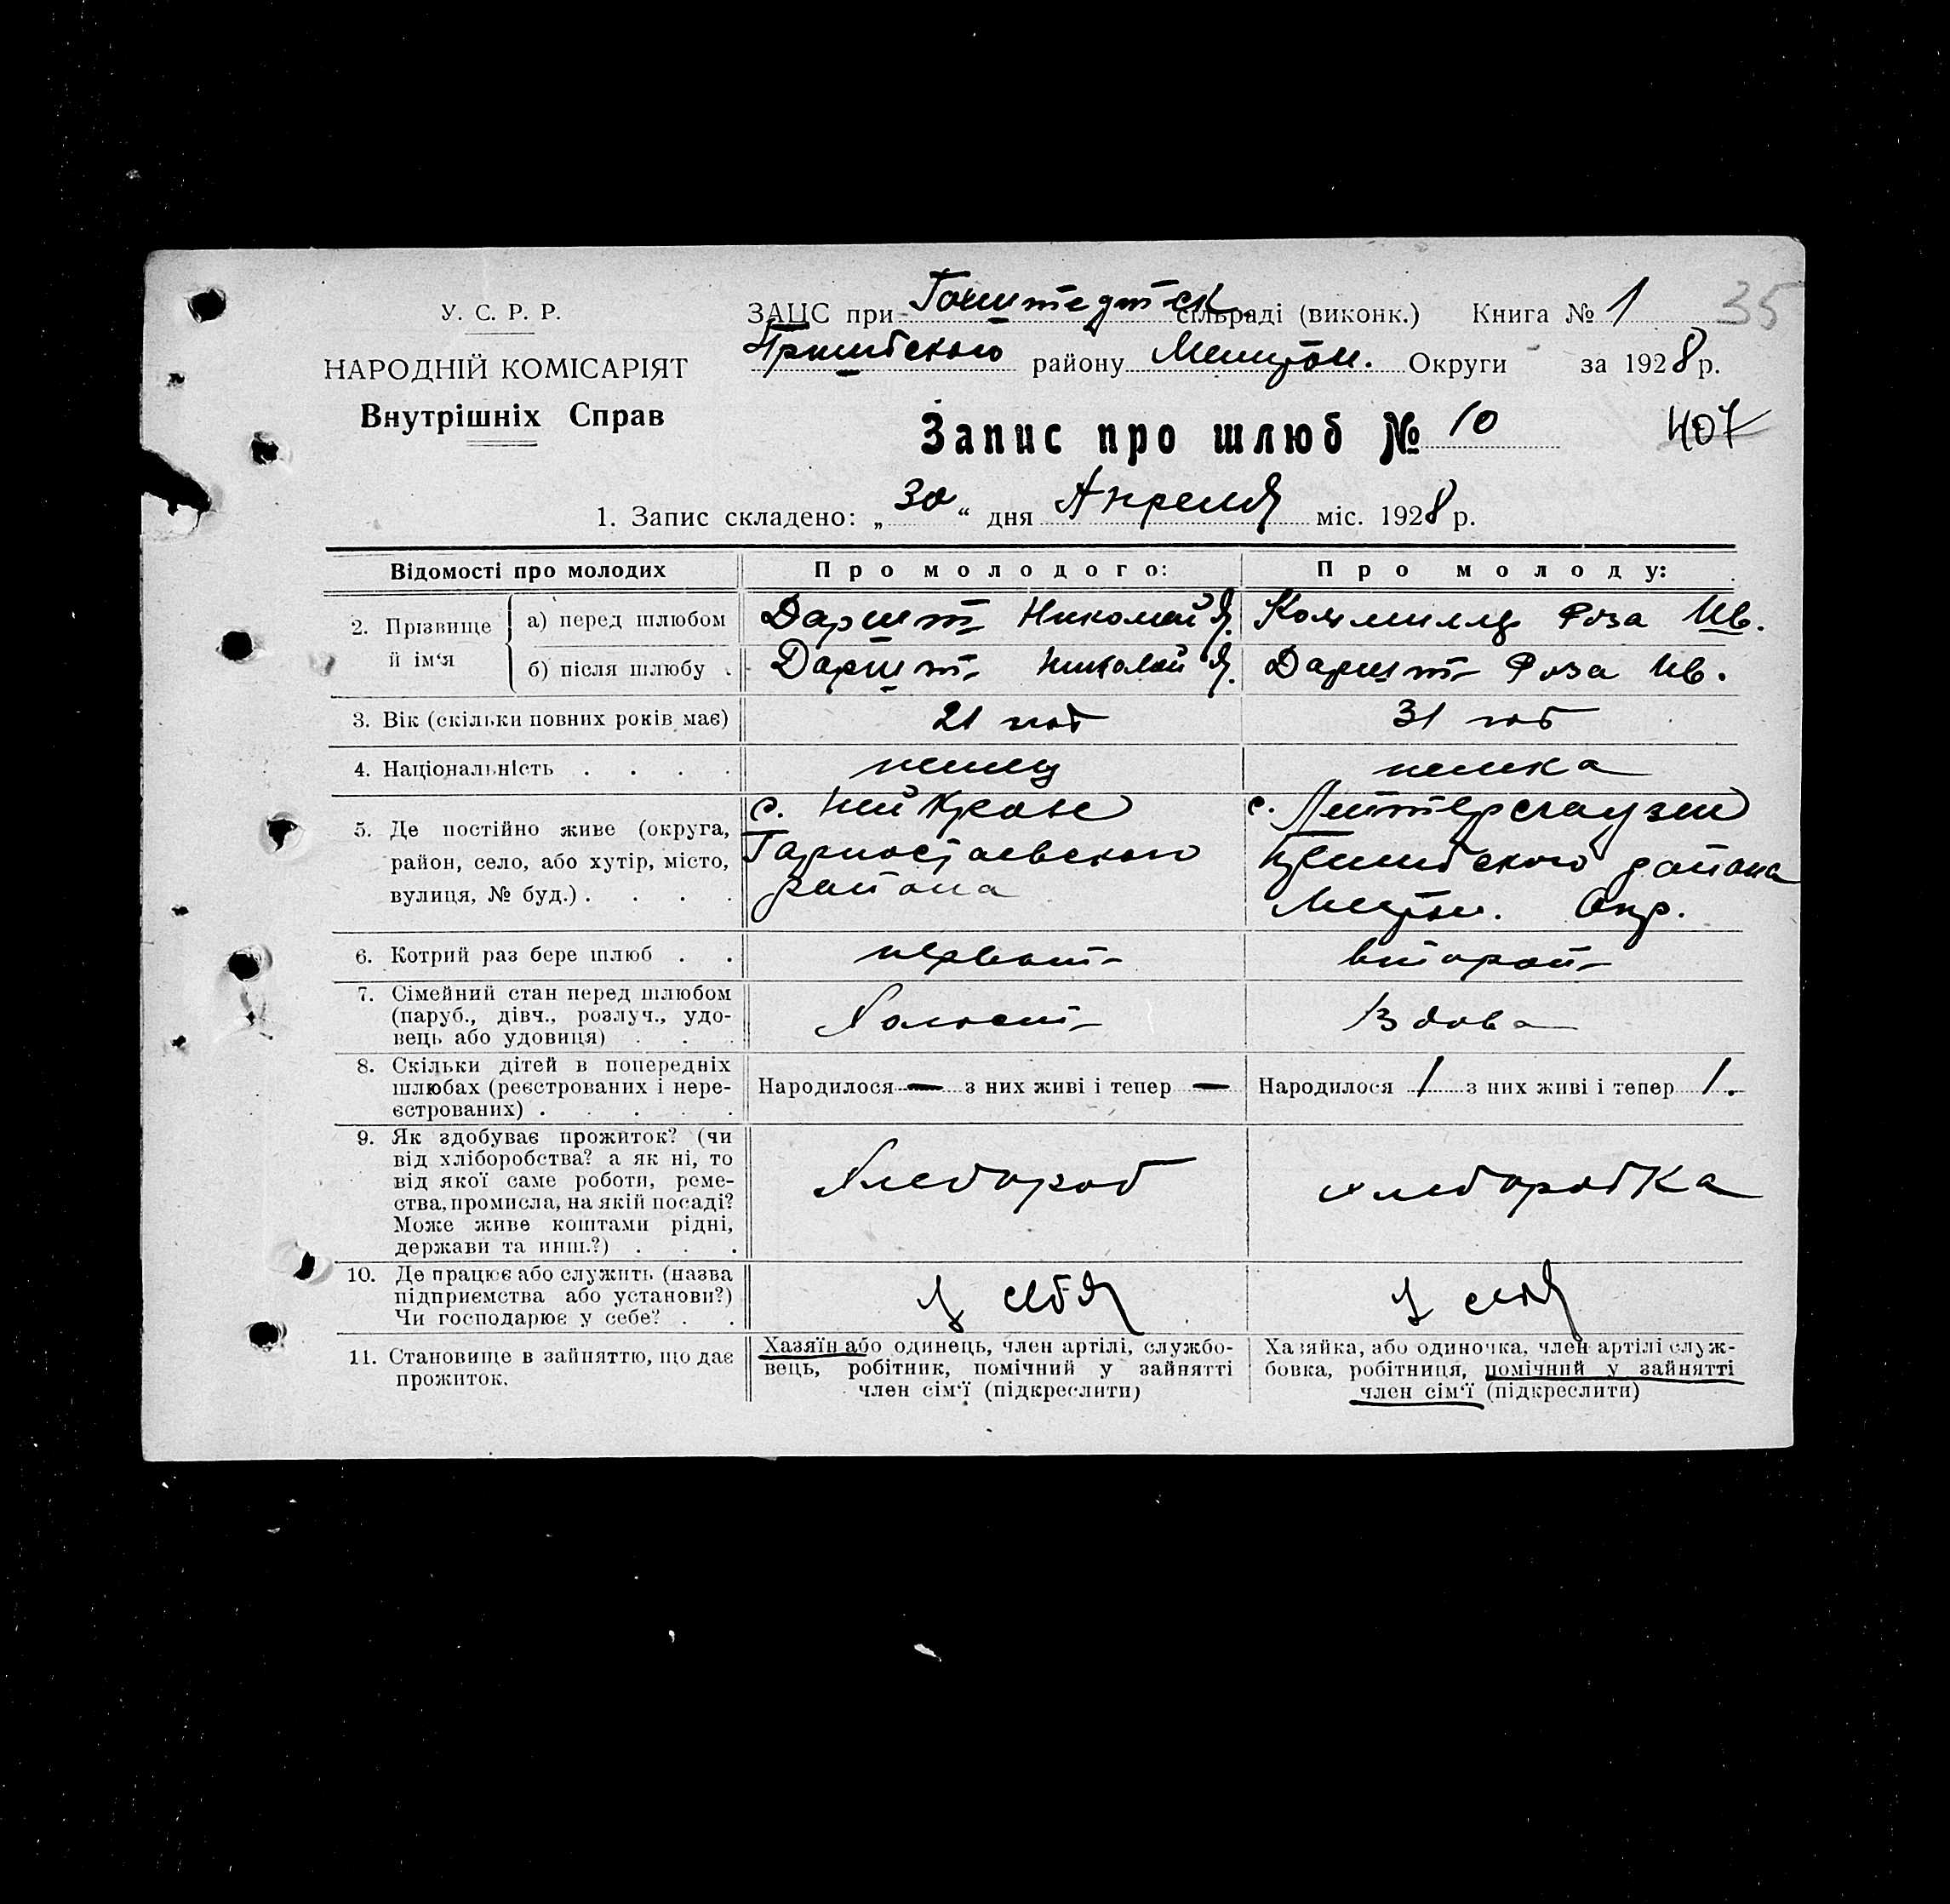 У. С. Р. Р.
НАРОДНІЙ КОМІСАРІЯТ
Внутрішніх Справ
ЗАЦС при Гохштедтск. сільраді (виконк.) Книга № 1 35
Пришибского району Мелитоп. Округи за 1928 р.
Запис про шлюб № 10 407
1. Запис складено: „30“ дня Апреля міс. 1928 р.
Відомості про молодих
Про молодого:
Про молоду:
2. Прізвище й ім‘я
а) перед шлюбом
Даршт Николай Я.
Роза Ив.
б) після шлюбу
Даршт Николай Я.
Даршт Роза Ив.
3. Вік (скільки повних років має)
21 год
31 год
4. Національність . . . .
немец
немка
5. Де постійно живе (округа,
район, село, або хутір, місто,
вулиця, № буд.) . . . .
с. Ней Кроне
Горностаевского
района
с. Лейтерсгаузен
Пришибского района
Мелитоп. Окр.
6. Котрий раз бере шлюб . .
первый
второй
7. Сімейний стан перед шлюбом
(паруб., дівч., розлуч., удо-
вець або удовиця) . . .
Холост
Вдова
8. Скільки дітей в попередніх
шлюбах (реєстрованих і нере-
єстрованих) . . . . .
Народилося — з них живі і тепер —
Народилося 1 з них живі і тепер 1.
9. Як здобуває прожиток? (чи
від хліборобства? а як ні, то
від якої саме роботи, реме-
ства, промисла, на якій посаді?
Може живе коштами рідні,
держави та инш.?) . . .
Хлебороб
хлеборобка
10. Де працює або служить (назва
підприємства або установи?)
Чи господарює у себе? . .
У себя
У себя
11. Становище в зайняттю, що дає
прожиток.
Хазяїн або одинець, член артілі, службо-
вець, робітник, помічний у зайнятті
член сім‘ї (підкреслити)
Хазяйка, або одиночка, член артілі служ-
бовка, робітниця, помічний у зайнятті
член сім‘ї (підкреслити)